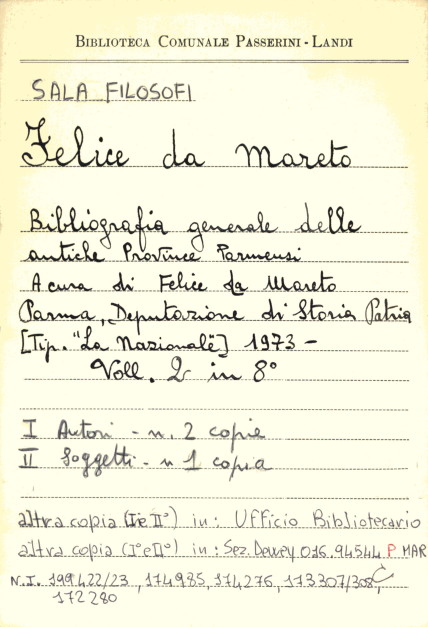 BIBLIOTECA COMUNALE PASSERINI-LANDI
SALA FILOSOFI
Felice da Mareto
Bibliografia generale delle
antiche Province Parmensi
A cura di Felice da Mareto
Parma, Deputazione di Storia Patria
[Tip. "La Nazionale"] 1973 -
Voll. 2 in 8°
I Autori - n. 2 copie
II Soggetti - n 1 copia
altra copia (I e II°) in: Ufficio Bibliotecario
altra copia (I° e II°) in: Sez. Dewey 016.94544 P MAR
N.I. 199422/23, 174985, 174276, 173307/308,
172280